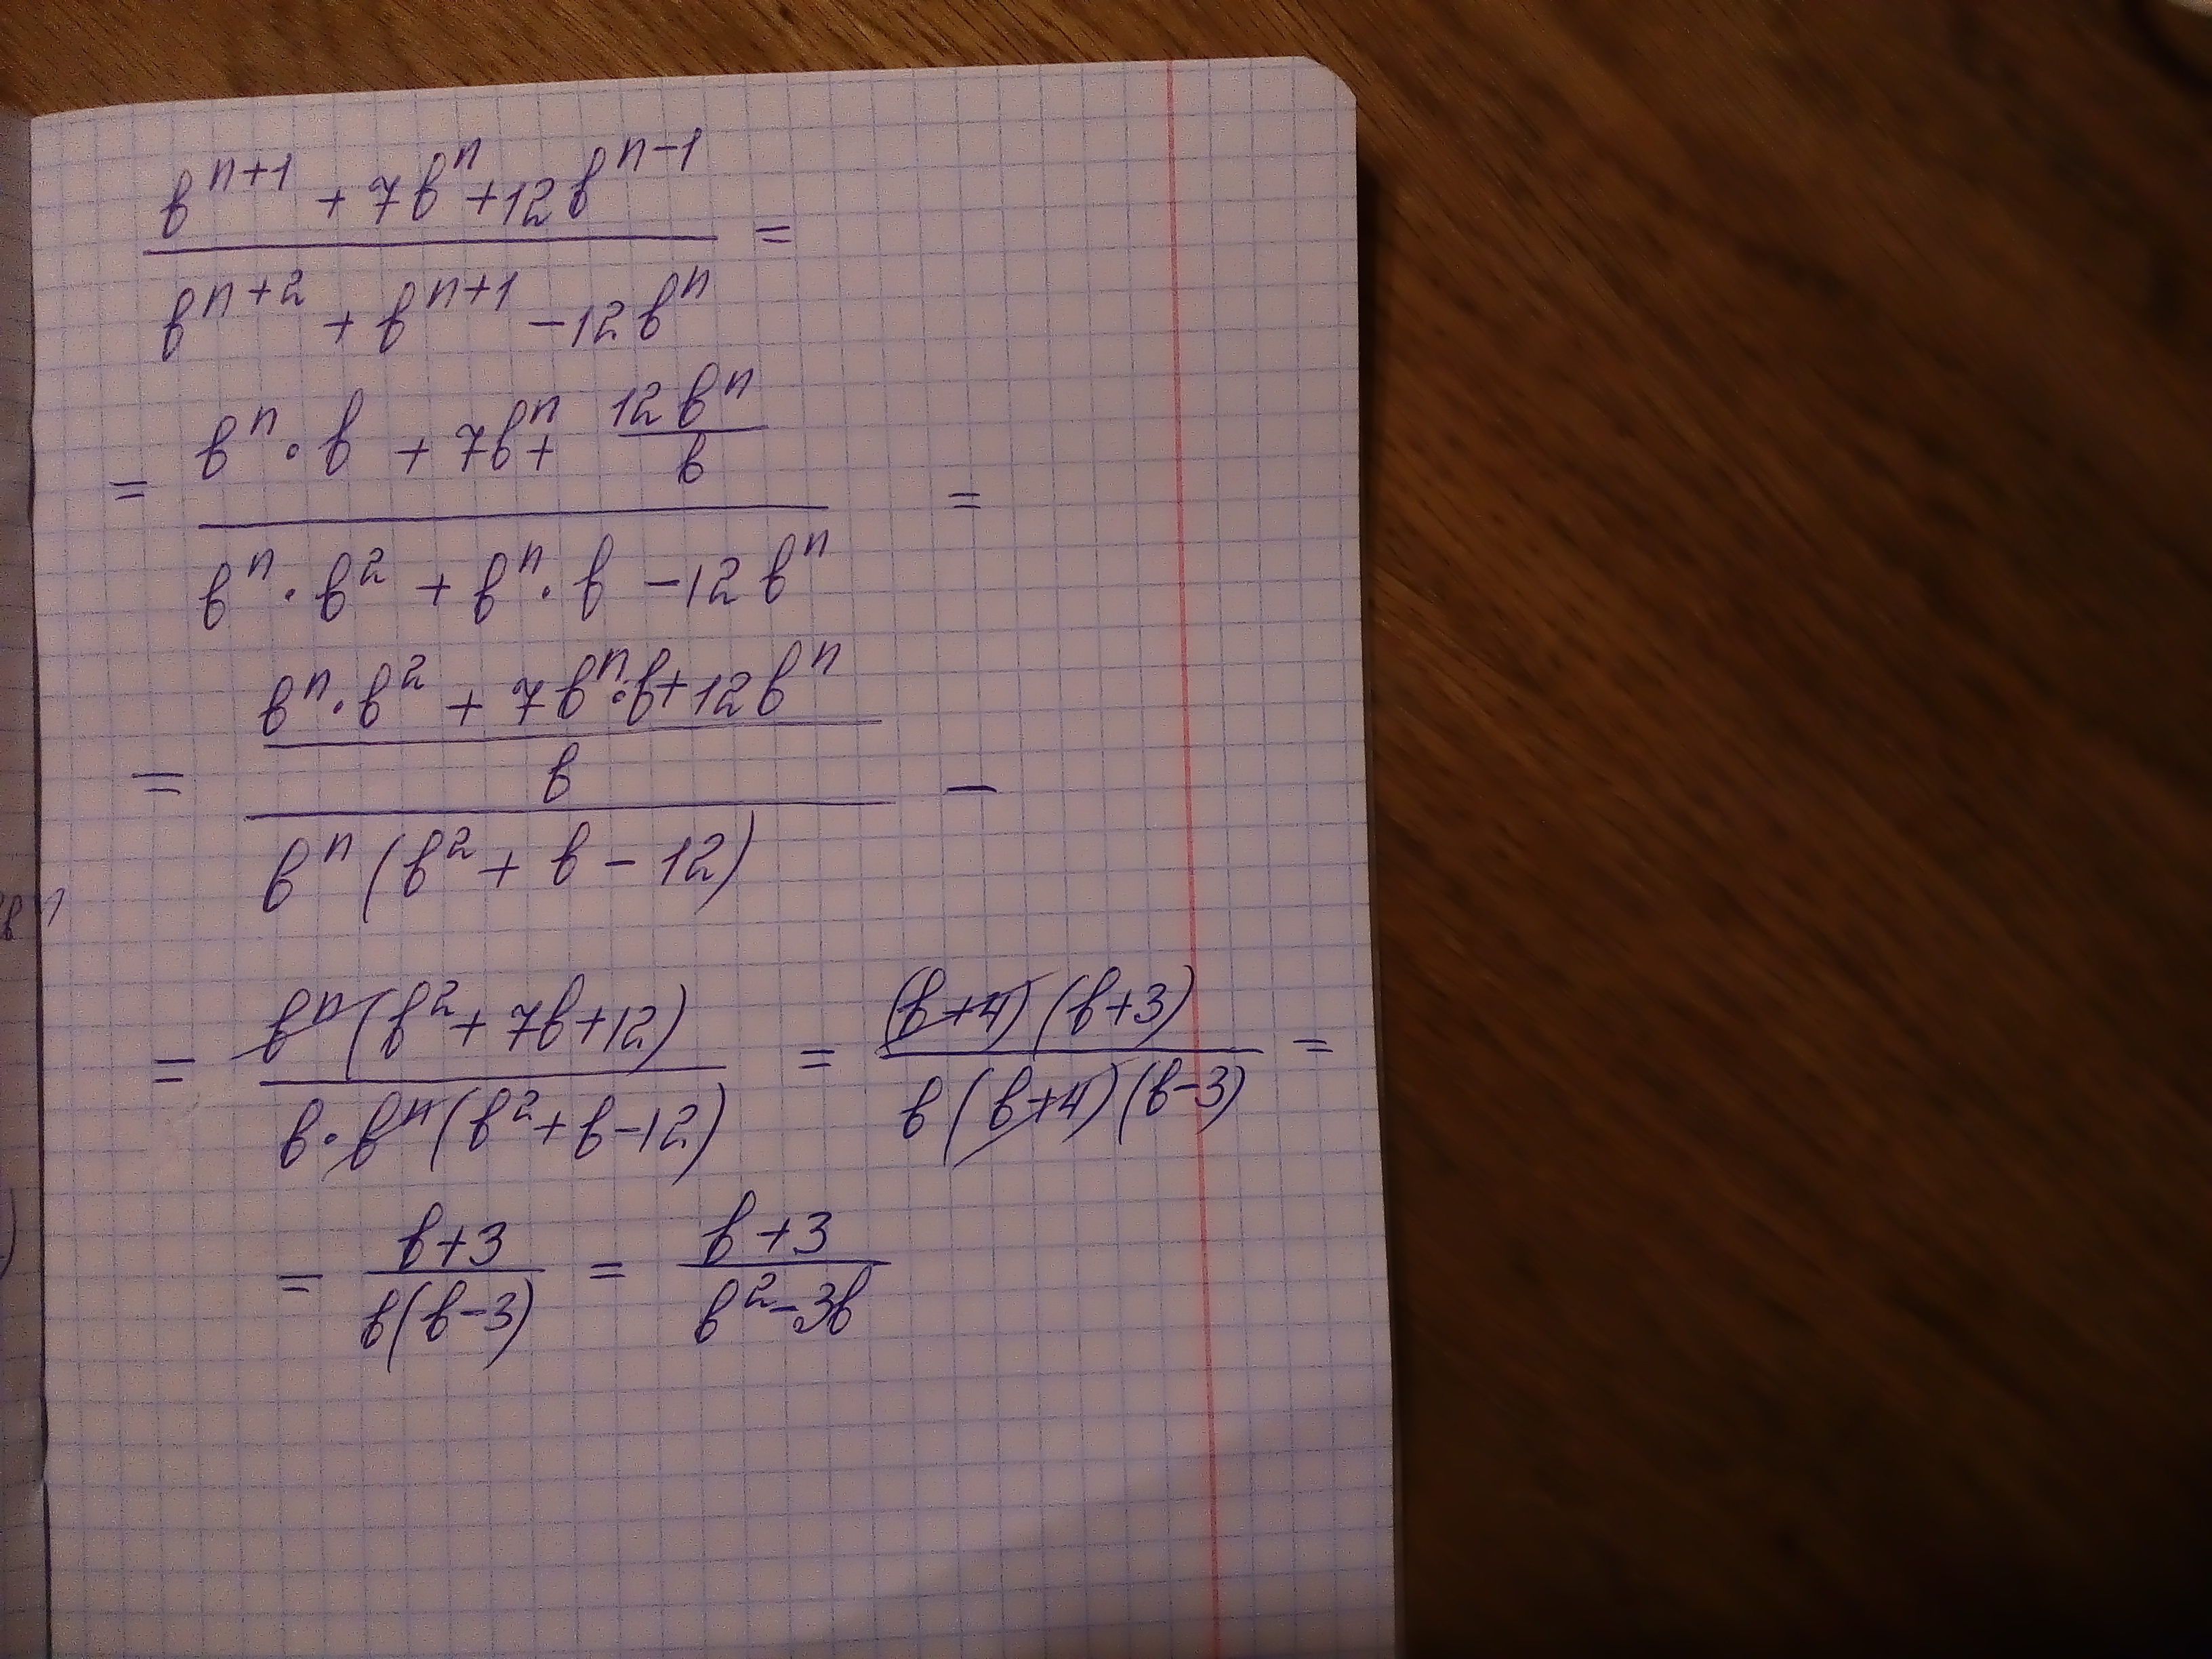 (b^{n+1} + 7b^n + 12b^{n-1}) / (b^{n+2} + b^{n+1} - 12b^n) =
= (b^n · b + 7b^n + 12b^n / b) / (b^n · b^2 + b^n · b - 12b^n) =
= ((b^n · b^2 + 7b^n · b + 12b^n) / b) / (b^n (b^2 + b - 12)) -
= (b^n (b^2 + 7b + 12)) / (b · b^n (b^2 + b - 12)) = ((b+4)(b+3)) / (b(b+4)(b-3)) =
= (b+3) / (b(b-3)) = (b+3) / (b^2 - 3b)